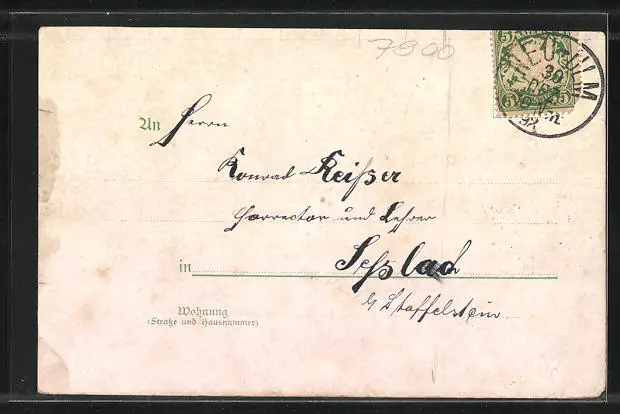 7900
5
NEU-ULM
30
DEZ
5 5
An Herrn
Konrad Reißer
Corrector und Lehrer
in Seßlach
b/ Staffelstein
Wohnung
(Straße und Hausnummer)